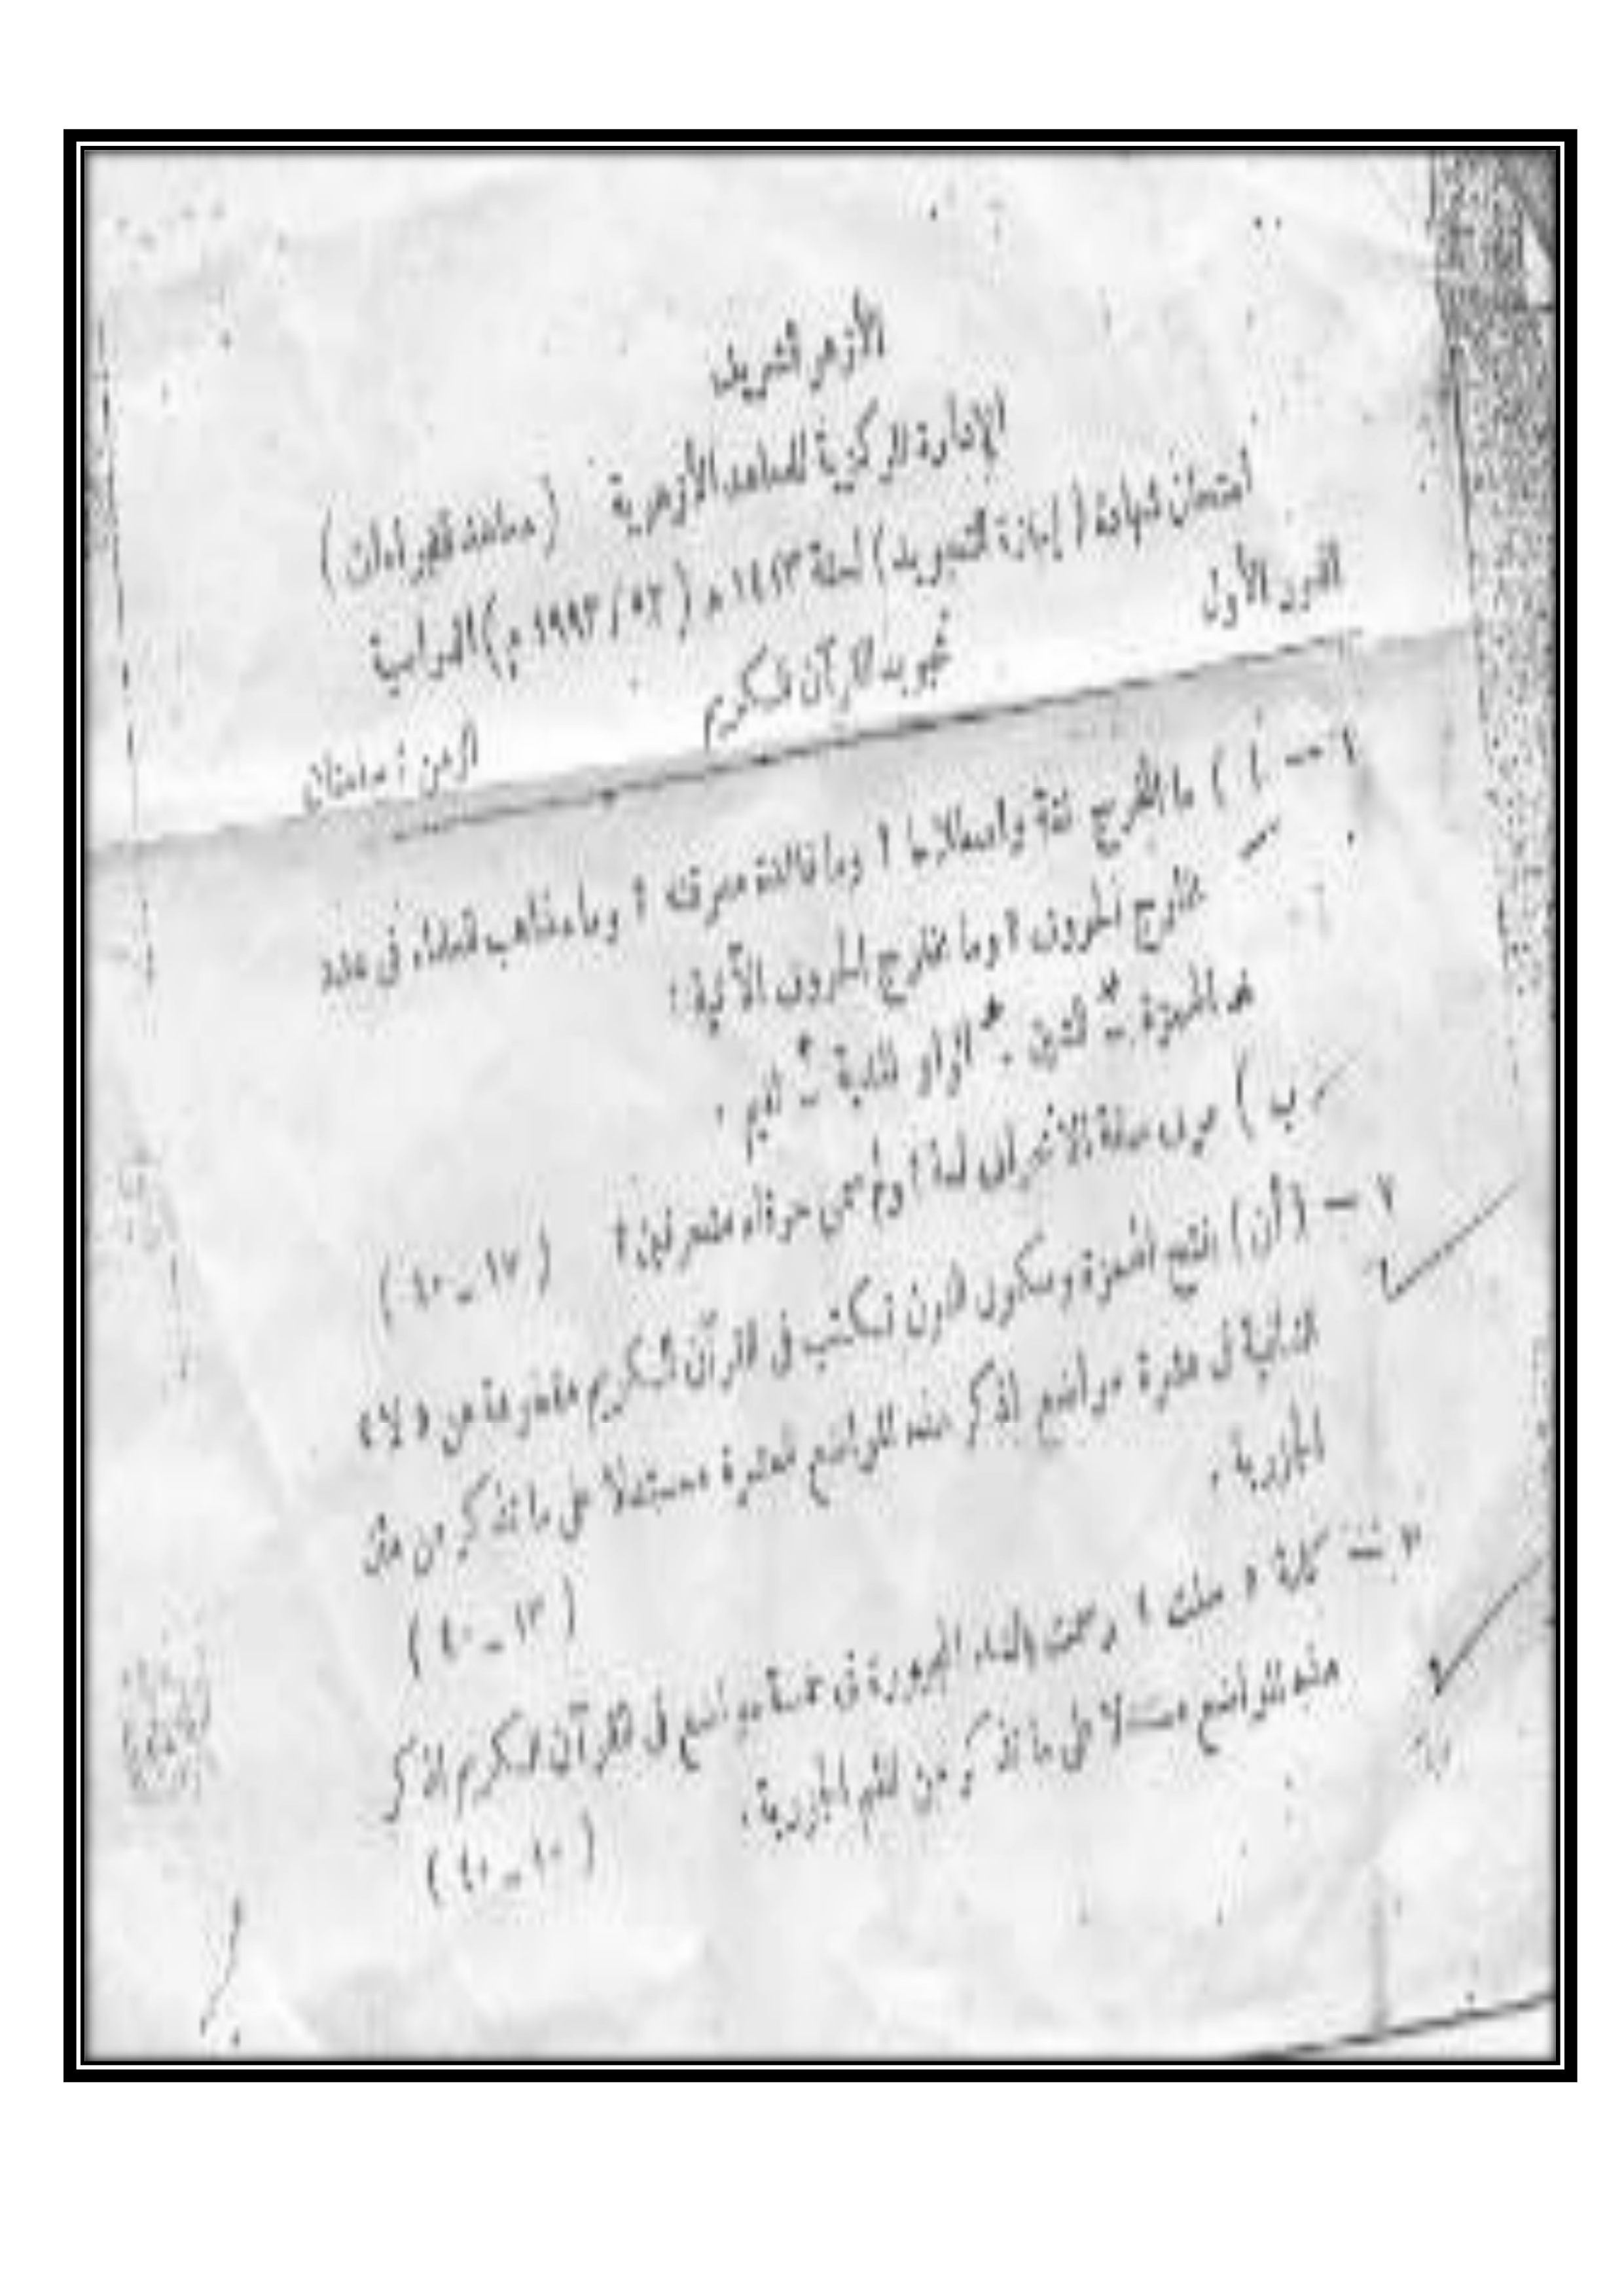 الأزهر الشريف
الإدارة المركزية للمعاهد الأزهرية (معاهد القراءات)
امتحان شهادة (إجازة التجويد) لسنة ١٤١٣ هـ (٩٢ / ١٩٩٣ م) الدراسية
الدور الأول
تجويد القرآن الكريم
الزمن : ساعتان
١ — ا ) ما المخرج لغة واصطلاحا ؟ وما فائدة معرفته ؟ وما مذاهب العلماء فى عدد
مخارج الحروف ؟ وما مخارج الحروف الآتية :
* الهمزة - * الشين - * الواو المدية - * الميم .
ب ) عرف صفة الانحراف لغة ؟ ولم سمى حرفاه منحرفين ؟
( ١٧ - ٤٠ )
٢ — (أن) بفتح الهمزة وسكون النون تكتب فى القرآن الكريم مقطوعة عن « لا »
النافية فى عشرة مواضع اذكر هذه المواضع العشرة مستدلا على ما تذكر من متن
الجزرية .
( ١٣ - ٤٠ )
٣ — كلمة « رسمت بالتاء المجرورة فى خمسة مواضع فى القرآن الكريم اذكر
هذه المواضع مستدلا على ما تذكر من نظم الجزرية .
( ١٠ - ٤٠ )